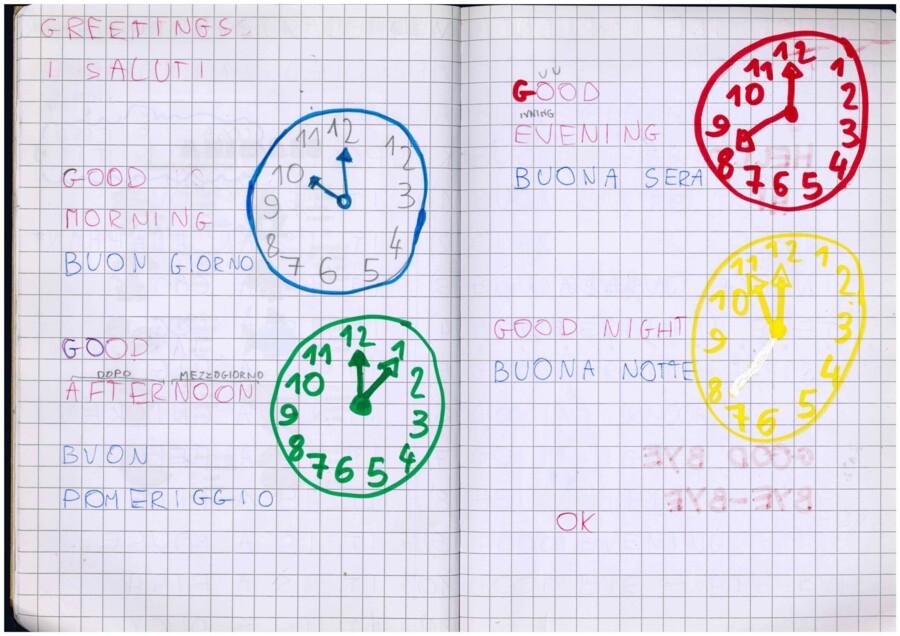 GREETINGS
I SALUTI
GOOD
MORNING
BUON GIORNO
12 1 2 3 4 5 6 7 8 9 10 11
GOOD
DOPO MEZZOGIORNO
AFTERNOON
BUON
POMERIGGIO
12 1 2 3 4 5 6 7 8 9 10 11
UU
GOOD
IVNING
EVENING
BUONA SERA
12 1 2 3 4 5 6 7 8 9 10 11
GOOD NIGHT
BUONA NOTTE
12 1 2 3 4 5 6 7 8 9 10 11
OK